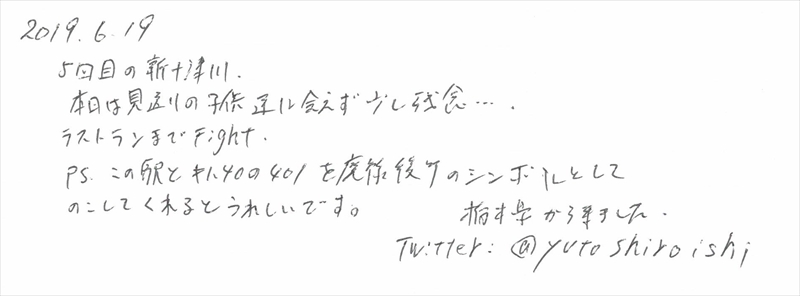 2019.6.19
5回目の新十津川.
本日は見送りの子供達に会えず少し残念….
ラストランまでFight.
PS. この駅とキハ40の401を廃線後々のシンボルとして
のこしてくれるとうれしいです。
栃木県から来ました.
Twitter: @yutoshiroishi